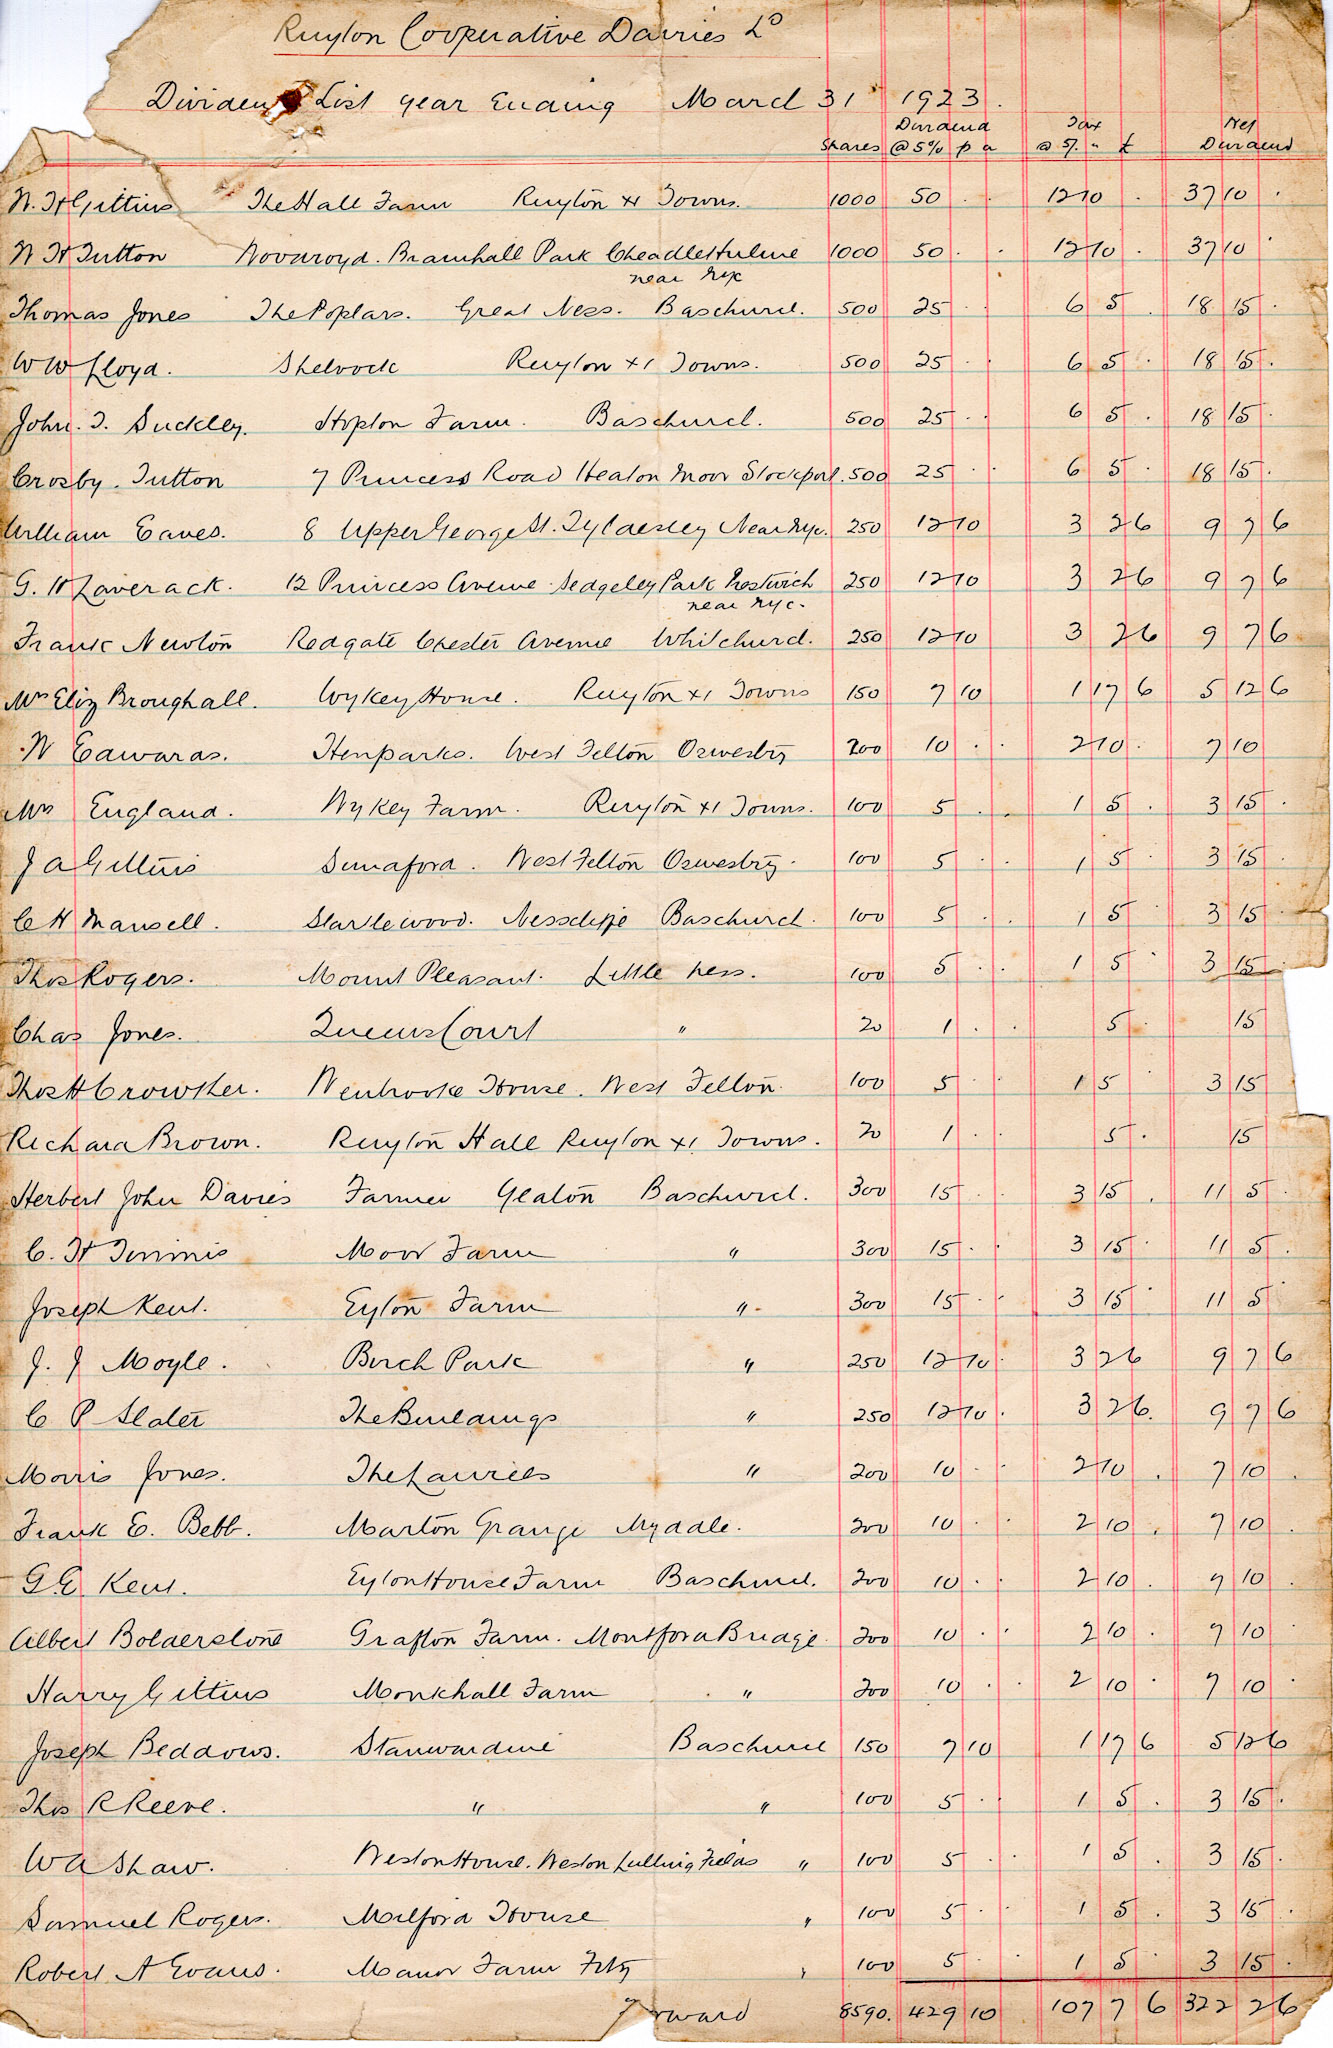 Ruyton Cooperative Dairies Ld
Dividend List year Ending March 31 1923.
Shares Dividend @ 5% p a Tax @ 5/- " £ Net Dividend
W. H Gittins The Hall Farm Ruyton XI Towns. 1000 50 . . 12 10 . 37 10 .
W H Tutton Novaroyd. Bramhall Park Cheadle Hulme 1000 50 . . 12 10 . 37 10 .
near M/c
Thomas Jones The Poplars. Great Ness. Baschurch. 500 25 6 5 . 18 15 .
W W Lloyd. Shelvock Ruyton XI Towns. 500 25 . . 6 5 . 18 15 .
John. T. Suckley. Hopton Farm. Baschurch. 500 25 . . 6 5 . 18 15 .
Crosby. Tutton 7 Princess Road Heaton Moor Stockport. 500 25 . . 6 5 . 18 15 .
William Eaves. 8 Upper George St. Tyldesley Near M/c. 250 12 10 3 2 6 9 7 6
G. H Laverack. 12 Princess Avenue Sedgeley Park Prestwich 250 12 10 3 2 6 9 7 6
near M/c.
Frank Newton Redgate Chester Avenue Whitchurch. 250 12 10 3 2 6 9 7 6
Mrs Eliz Broughall. Wykey House. Ruyton XI Towns 150 7 10 1 17 6 5 12 6
W Edwards. Henparks. West Felton Oswestry 200 10 . . 2 10 . 7 10
Mrs England. Wykey Farm. Ruyton XI Towns. 100 5 . . 1 5 . 3 15 .
J A Gittins Sunaford. West Felton Oswestry. 100 5 . . 1 5 . 3 15 .
C H Mansell. Startlewood. Nesscliffe Baschurch. 100 5 . . 1 5 . 3 15 .
Thos Rogers. Mount Pleasant. Little Ness. 100 5 . . 1 5 . 3 15
Chas Jones. Queens Court " 20 1 . . 5 . 15
Thos H Crowther. Wenbrooke House. West Felton. 100 5 . . 1 5 3 15
Richard Brown. Ruyton Hall Ruyton XI Towns. 20 1 . . 5 . 15
Herbert John Davies Farmer Yeaton Baschurch. 300 15 . . 3 15 . 11 5 .
C. H Timmis Moor Farm " 300 15 . . 3 15 . 11 5 .
Joseph Kent. Eyton Farm " 300 15 . . 3 15 . 11 5 .
J. J Moyle. Birch Park " 250 12 10 . 3 2 6 9 7 6
C P Slater The Buildings " 250 12 10 . 3 2 6. 9 7 6
Morris Jones. The Laurels " 200 10 . . 2 10 . 7 10 .
Frank E. Bebb. Marton Grange Myddle. 200 10 . . 2 10 . 7 10 .
G. E Kent. Eyton House Farm Baschurch. 200 10 . . 2 10 . 7 10 .
Albert Bolderstone Grafton Farm. Montford Bridge 200 10 . . 2 10 . 7 10 .
Harry Gittins Monkhall Farm " 200 10 . . 2 10 . 7 10 .
Joseph Beddows. Stanwardine Baschurch 150 7 10 1 17 6 5 12 6
Thos R Reeve. " " 100 5 . 1 5 . 3 15 .
W A Shaw. Weston House. Weston Lullingfields " 100 5 . . 1 5 . 3 15 .
Samuel Rogers. Milford House " 100 5 . . 1 5 . 3 15 .
Robert A Evans. Manor Farm Fitz " 100 5 . . 1 5 . 3 15 .
Forward 8590. 429 10 107 7 6 322 2 6